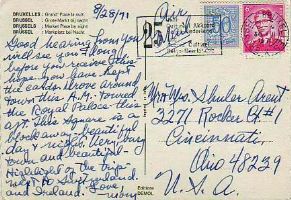 BRUXELLES : Grand'Place la nuit
BRUSSEL : Grote Markt bij nacht
BRUSSELS : Market Place by night
BRÜSSEL : Marktplatz bei Nacht
8/28/71
Air
Mail
Good hearing from you
will see you long
before you receive this
hope you have kept
the earth above around
town this A.M. toward
the Royal Palace this
aft. This square is a
block away - beautiful
day & night. Very busy
town and beautiful -
Highlight of the trip
next to Switzerland
and Ireland. Love
Mr + Mrs. Arent
3271 Rocker Pt #1
Cincinnati,
Ohio 48239
U.S.A.
Editions
DEMOL